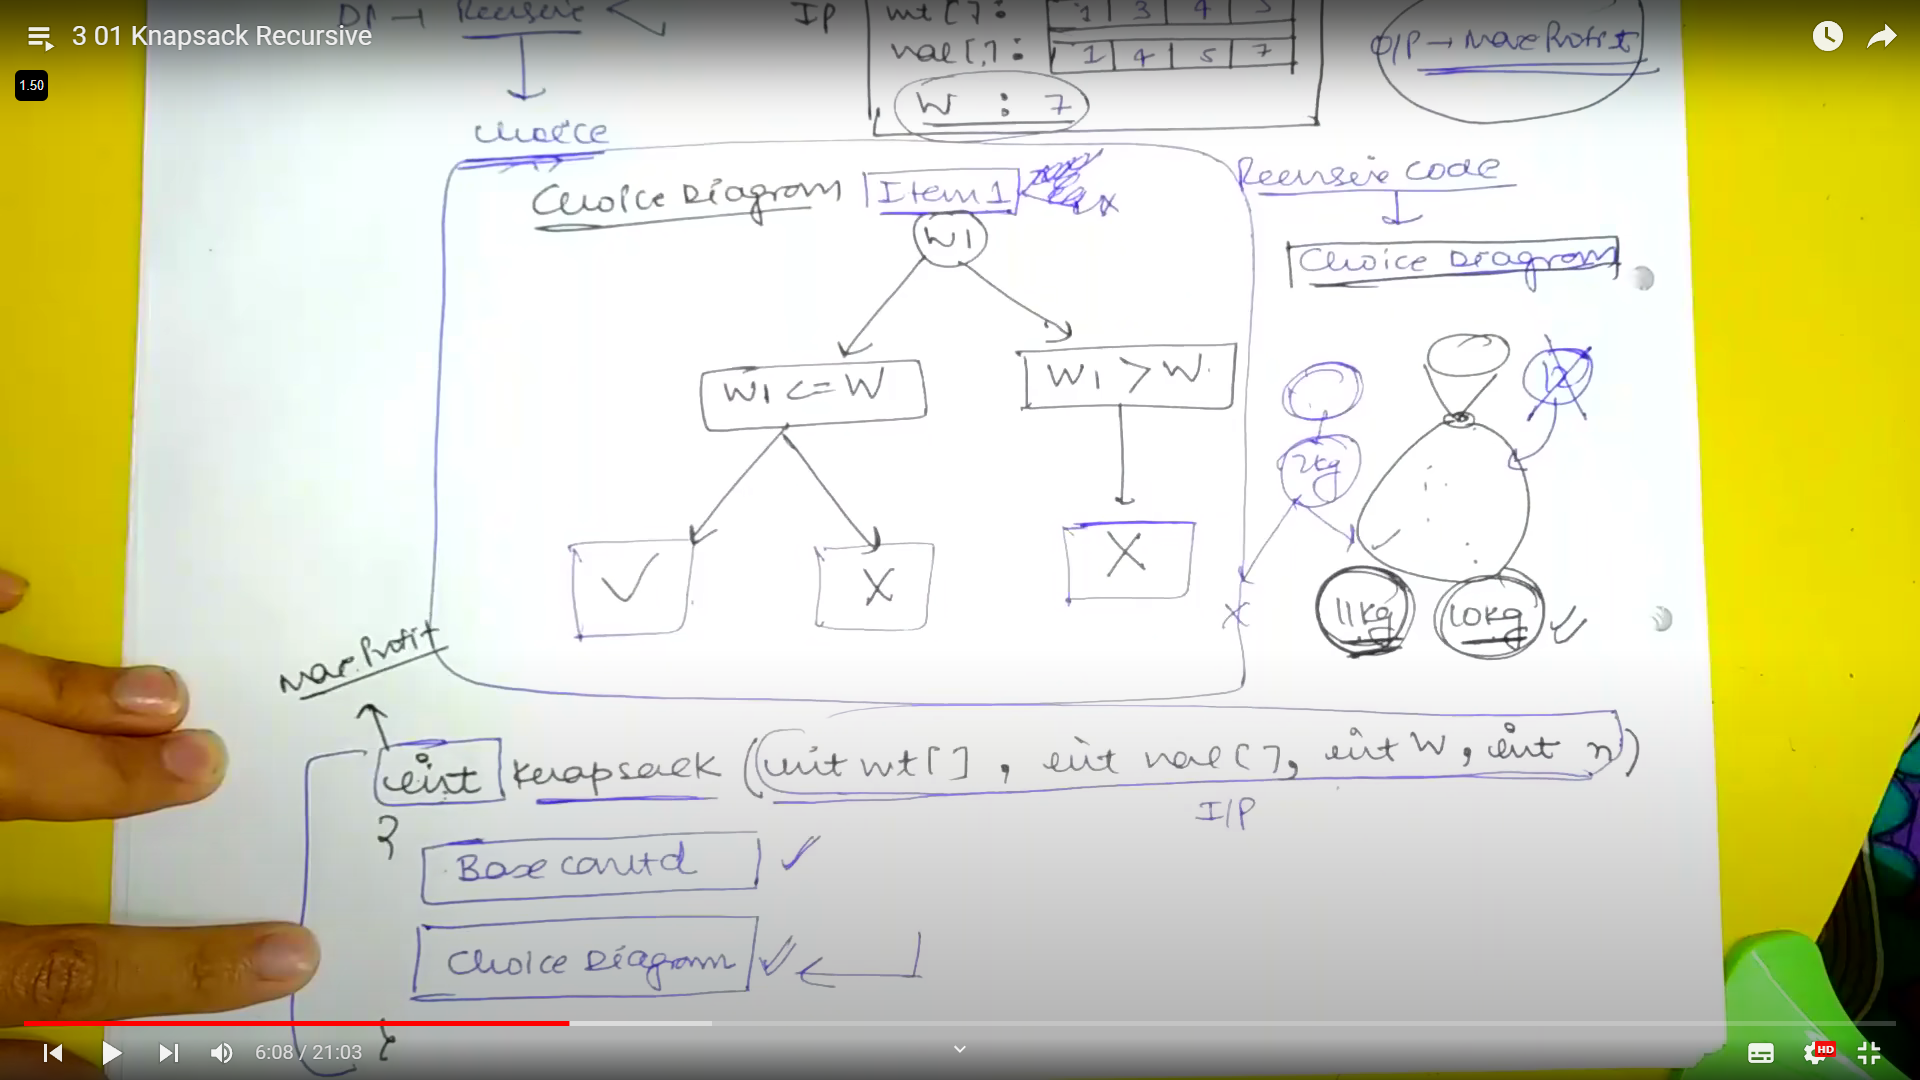 3 01 Knapsack Recursive
1.50
DP → Recursive
choice
I/P
wt [ ] : 1 3 4 5
val [ ] : 1 4 5 7
W : 7
O/P → Max Profit
Choice Diagram Item 1
W1
W1 <= W
W1 > W
✓
X
X
Recursive code
Choice Diagram
12
2kg
X
✓
11kg
10kg ✓
Max Profit
int Knapsack (int wt[ ], int val[ ], int W, int n)
I/P
{
Base Condtn ✓
Choice Diagram ✓
}
6:08 / 21:03
HD